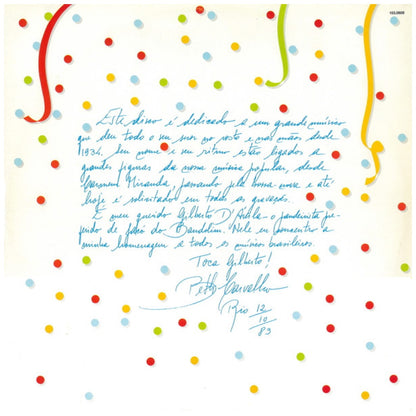 103.0608
Este disco é dedicado a um grande músico
que deu todo o seu suor no rosto e nas mãos, desde
1934. Seu nome e seu ritmo estão ligados a
grandes figuras da nossa música popular, desde
Carmem Miranda, passando pela bossa nova e até
hoje é solicitado em todas as gravações.
É meu querido Gilberto D'Ávila - o pandeirista pre-
ferido de Jacó do Bandolim. Nele eu concentro a
minha homenagem a todos os músicos brasileiros.
Toca Gilberto!
Beth Carvalho
Rio 12
10
83